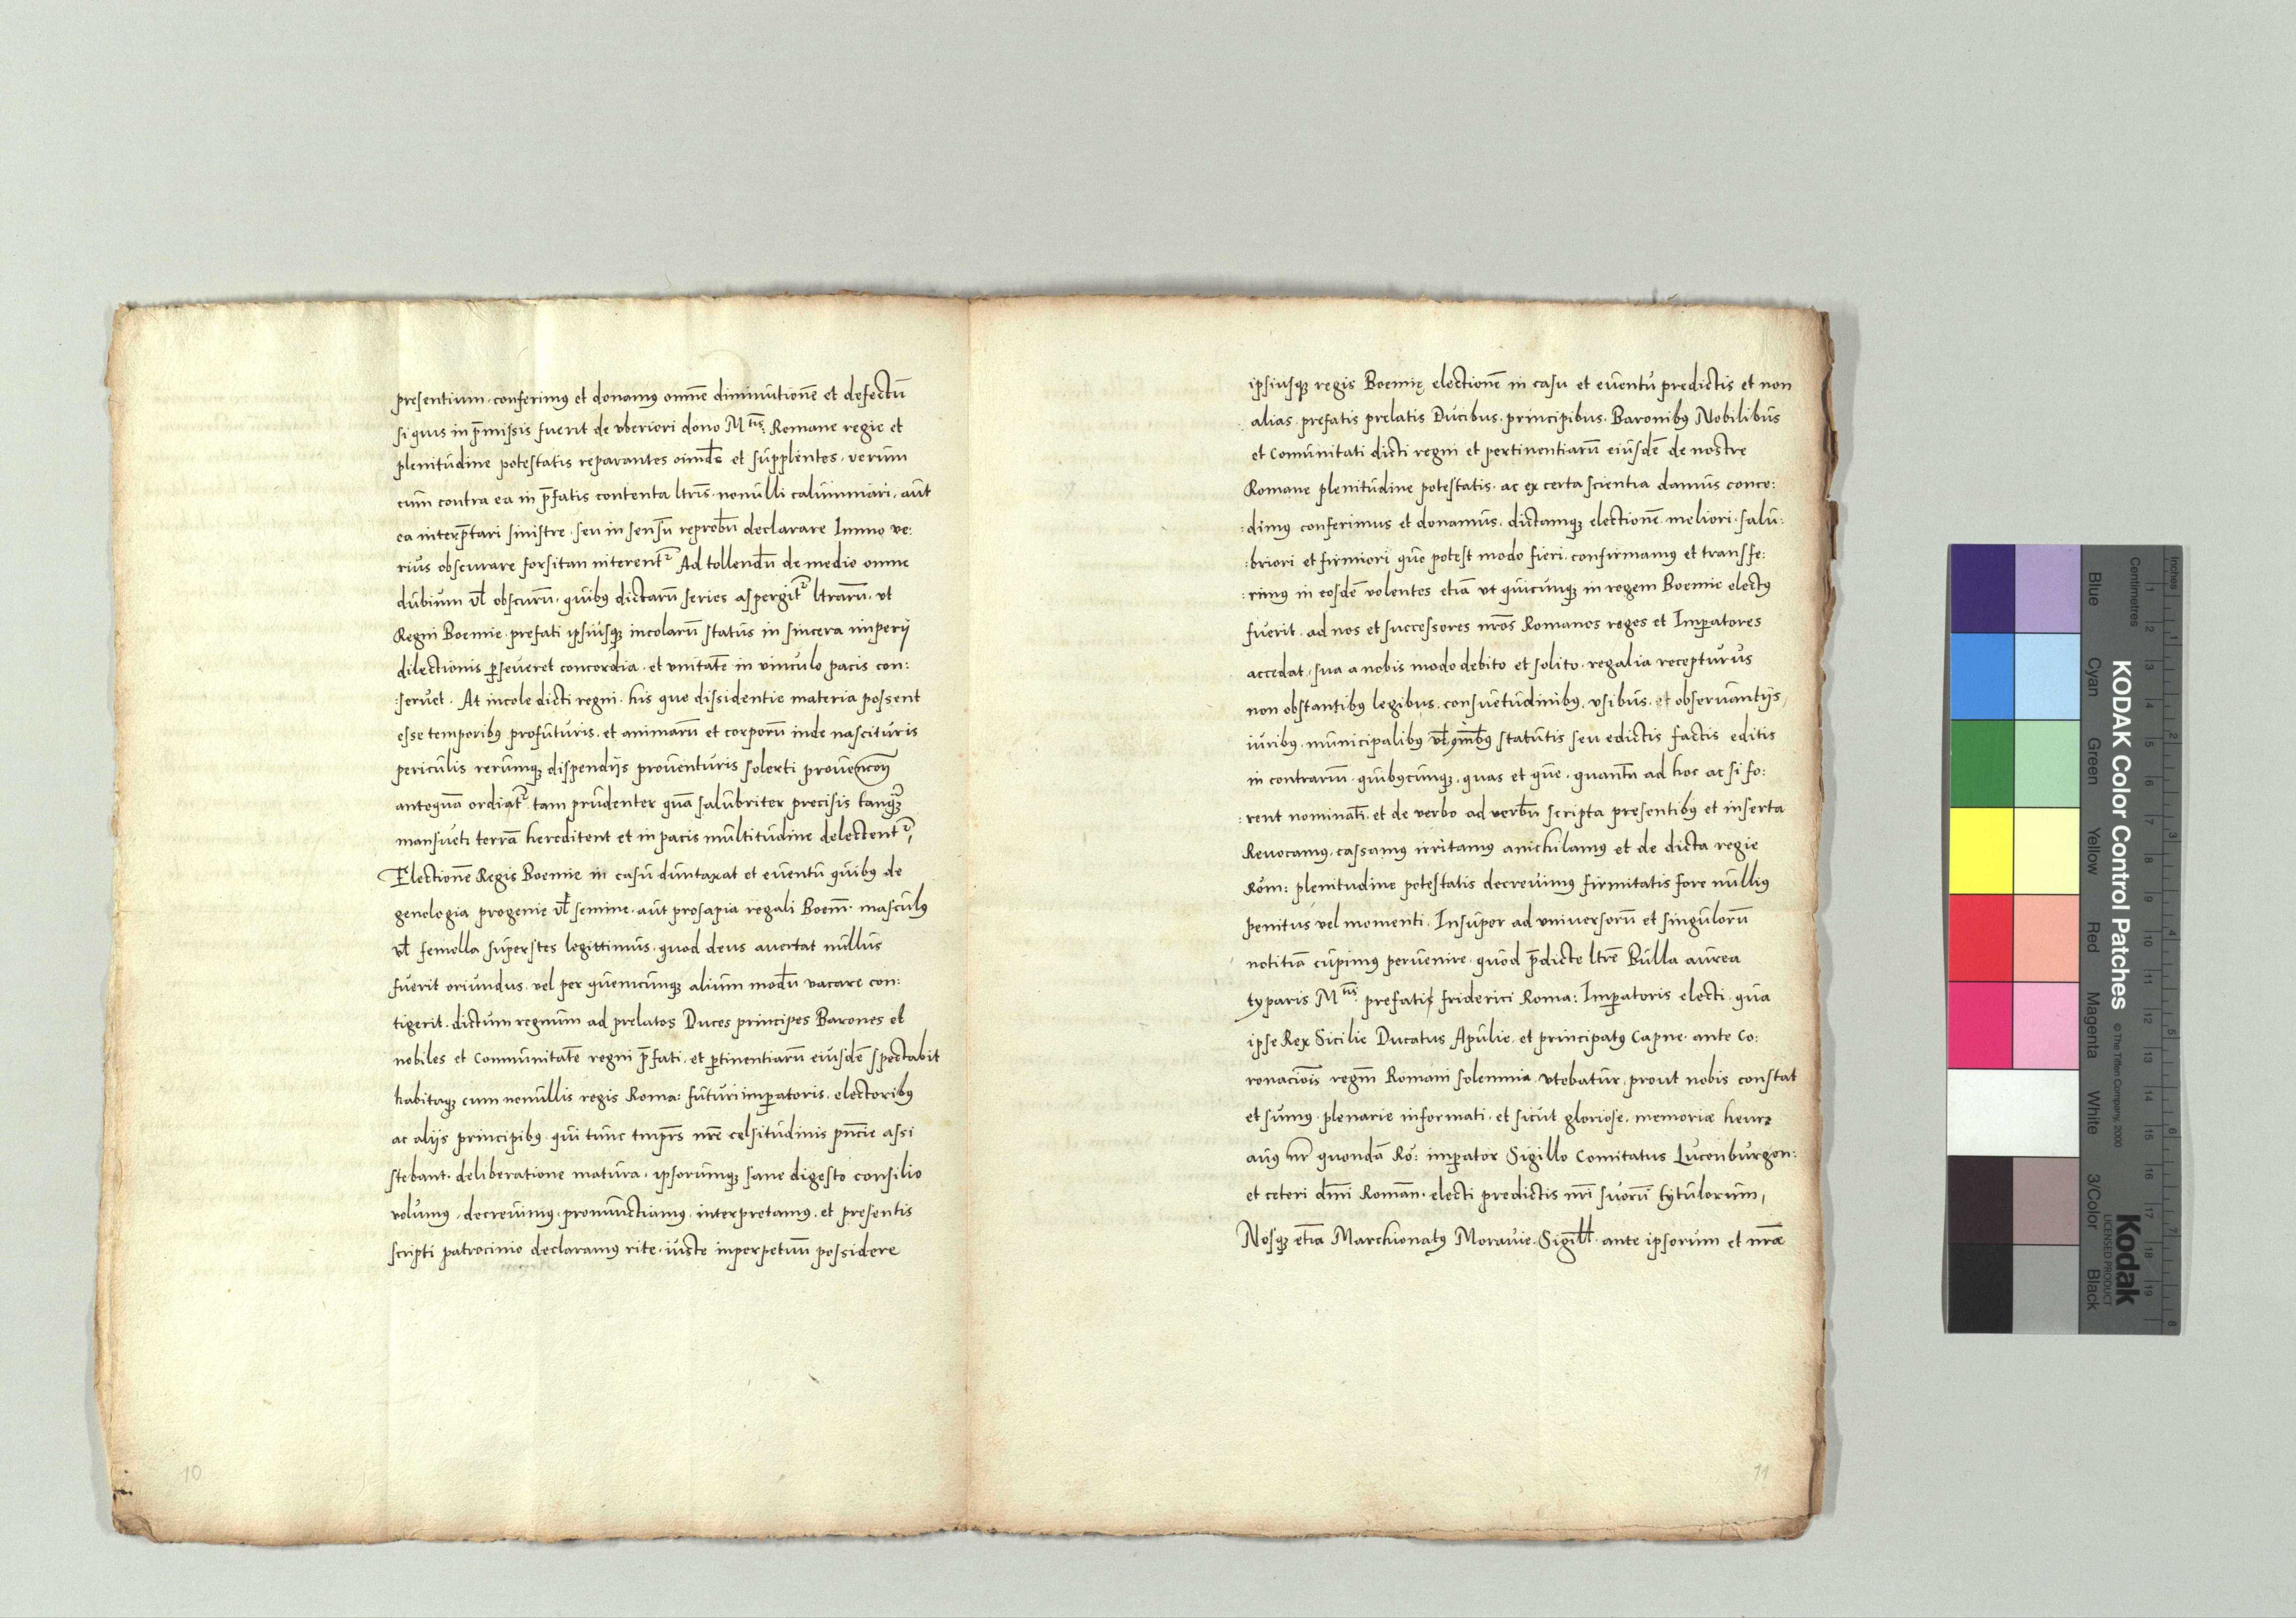 presentium· conferimꝰ et donamꝰ omnē diminutionē et defectū
si quis in p̄missis fuerit de vberiori dono Mtis: Romane regie et
plenitudine potestatis reparantes et supplentes· verum
cum contra ea in p̄fatis contenta ltris· nonulli calumniari· aut
ea interp̄tari sinistre· seu in sensū reprobū declarare Immo ve:
rius obscurare forsitan Ad tollendū de medio omne
dubium vł obscurū· quibꝰ dictarū series aspergitᷣ ltrarū· vt
Regni Boemie· prefati ipsiusqꝫ incolarū status in sincera imperij
dilectionis ꝑseueret concordia· et vnitatē in vinculo pacis con:
:seruet· At incole dicti regni· his que dissidentie materia possent
esse temporibꝰ profuturis· et animarū et corporū inde nascituris
periculis rerumqꝫ dispendijs prouenturis solerti
antequā tam prudenter quā salubriter precisis tanqꝫ
mansueti terrā hereditent et in pacis multitudine delectentᷣ,
Electionē Regis Boemie in casu duntaxat et euentu quibꝰ de
genologia progenie vł semine· aut prosapia regali Boem̄· masculꝰ
vł femella superstes legittimus· quod deus auertat nullus
fuerit oriundus· vel per quemcunqꝫ alium modū vacare con:
tigerit· dictum regnum ad prelatos Duces principes Barones et
nobiles et Communitatē regni p̄fati· et ꝑtinentiarū eiusdē spectabit
habitaqꝫ cum nonullis regis Roma: futuri imꝑatoris· electoribꝰ
ac alijs principibꝰ· qui tunc tmprs nrē celsitudinis pn̄cie assi
stebant· deliberatione matura· ipsorumqꝫ sane digesto consilio
volumꝰ· decreuimꝰ· pronunctiamꝰ· interpretamꝰ· et presentis
scripti patrocinio declaramꝰ rite· iuste inperpetuū possidere
10
ipsiusqꝫ regis Boemię electionē in casu et euentu predictis et non
alias· prefatis prelatis Ducibus· principibus· Baronibꝰ Nobilibus
et Comunitati dicti regni et pertinentiarū eiusdē de nostre
Romane plenitudine potestatis· ac ex certa scientia damus conce:
:dimꝰ conferimus et donamus· dictamqꝫ electionē meliori· salu:
:briori et firmiori quo potest modo fieri· confirmamꝰ et transfe:
:rimꝰ in eosdē volentes etiā vt quicunqꝫ in regem Boemie electꝰ
fuerit· ad nos et successores nros Romanos reges et Imꝑatores
accedat· sua a nobis modo debito et solito· regalia recepturus
non obstantibꝰ legibus· consuetudinibꝰ· vsibus· et obseruantijs,
iuribꝰ· municipalibꝰ statutis seu edictis factis editis
in contrariū· quibꝰcunqꝫ· quas et que· ad hoc ac si fo:
:rent nominati· et de verbo ad verbū scripta presentibꝰ et inserta
Reuocamꝰ· cassamus irritamꝰ anichilamꝰ et de dicta regie
Rom: plenitudine potestatis decreuimꝰ firmitatis fore nulliꝰ
penitus vel momenti· Insuper ad vniuersorū et singulorū
notitiā cupimꝰ peruenire· quod p̄dicte ltrē Bulla aurea
typaris Mtis: prefati friderici Roma: Imꝑatoris electi· qua
ipse Rex Sicilie Ducatus Apulie· et principatꝰ Capue· ante Co:
ronaciois regm̄ Romani solemnia· vtebatur· prout nobis constat
et sumꝰ· plenarie informati· et sicut gloriose· memoriæ
auꝰ nr̄ quondā Ro: imꝑator Sigillo Comitatus Lucenburgen:
et ceteri dm̄i Roman· electi predictis nri suorū tytulorum,
Nosqꝫ etiā Marchionatꝰ Morauie· Sigill· ante ipsorum et nræ
11
KODAK Color Control Patches
© The Tiffen Company, 2000
Kodak
LICENSED PRODUCT
Inches
Centimetres
Blue
Cyan
Green
Yellow
Red
Magenta
White
3/Color
Black